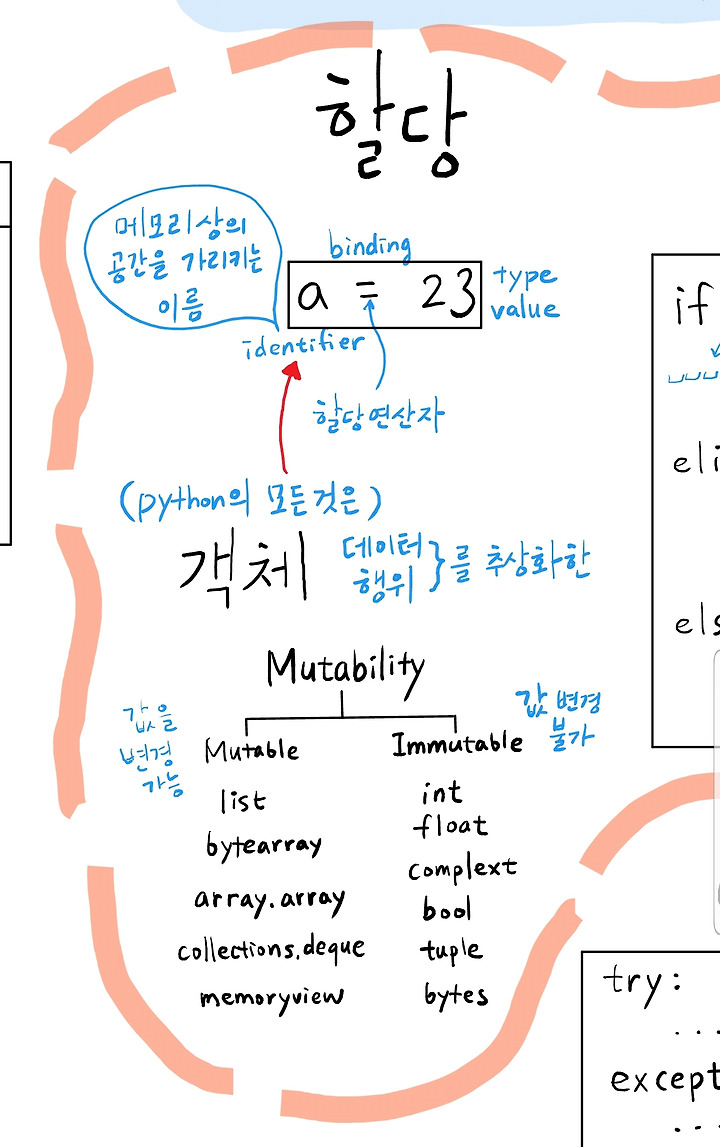 할당
메모리상의
공간을 가리키는
이름
binding
a = 23
type
value
identifier
할당연산자
(python의 모든것은)
객체
데이터
행위
}를 추상화한
Mutability
값을
변경
가능
Mutable
Immutable
값 변경
불가
list
bytearray
array.array
collections.deque
memoryview
int
float
complext
bool
tuple
bytes
if
eli
els
try:
...
except
...